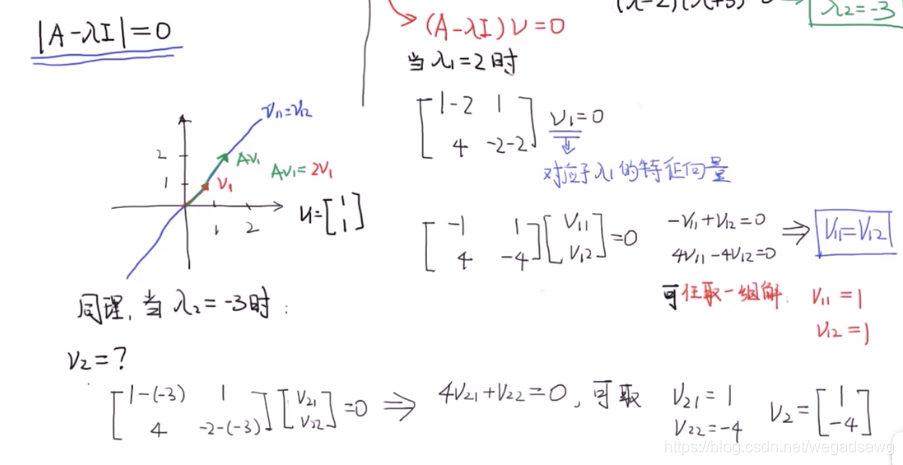 |A-λI|=0
(λ-2)(λ+3)
λ2=-3
(A-λI)V=0
当λ1=2时
[1-2 1
4 -2-2] V1=0
对应于λ1的特征向量
V11=V12
2
1
AV1
V1
AV1=2V1
1 2
V1=[1
1]
[-1 1
4 -4][V11
V12]=0
-V11+V12=0
4V11-4V12=0
⇒ V11=V12
可任取一组解: V11=1
V12=1
同理,当λ2=-3时:
V2=?
[1-(-3) 1
4 -2-(-3)][V21
V22]=0 ⇒ 4V21+V22=0, 可取 V21=1
V22=-4
V2=[1
-4]
https://blog.csdn.net/wegadsewg